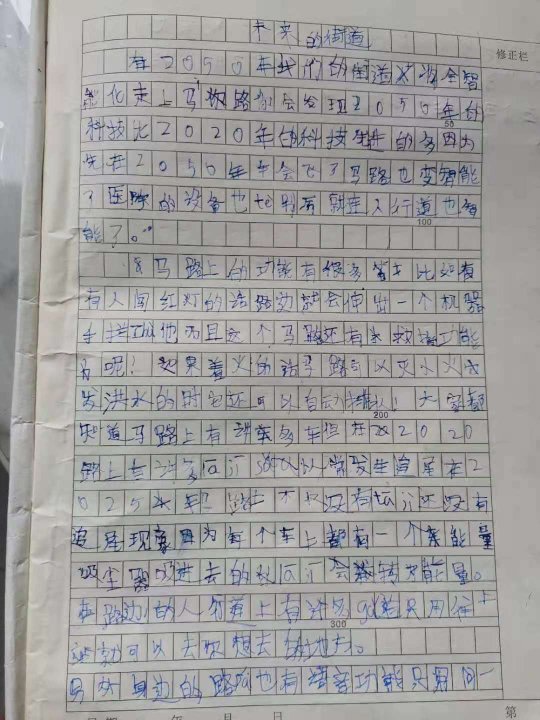 未来的街道
在2050年我们的街道会智
能化走上马路都会发现2050年的
科技比2020年的科技的多因为
先在2050年车会飞了马路也变智能
了医院的设备也te别高就连人行道也智
能了。
马路上的功能有很多比如有
有人闯红灯的话路边就会伸出一个机器
手拦zhu他而且这个马路还有功能
呢!如果着火的话马路可以灭火
发洪水的时它还可以自动排水!大家都
知道马路上有许多车但在2020
路上有la ji所以常发生追尾在2
025年路上不只没有la ji还没有
追尾现象因为每个车上都有一个能量
吸尘器吸进去的la ji会转能量。
在路边的人行道上有许多只用往上
就可以去你想去的地方。
另外身边的路灯也有语音功能只用问一
修正栏
100
200
300
第
年 月 日